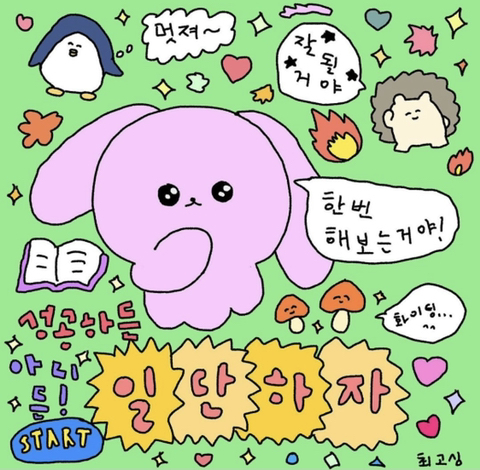 멋져~
잘
될
거 야
한 번
해보는거야!
화이팅...
^^
성공하든
아니
든!
일단하자
START
최고심